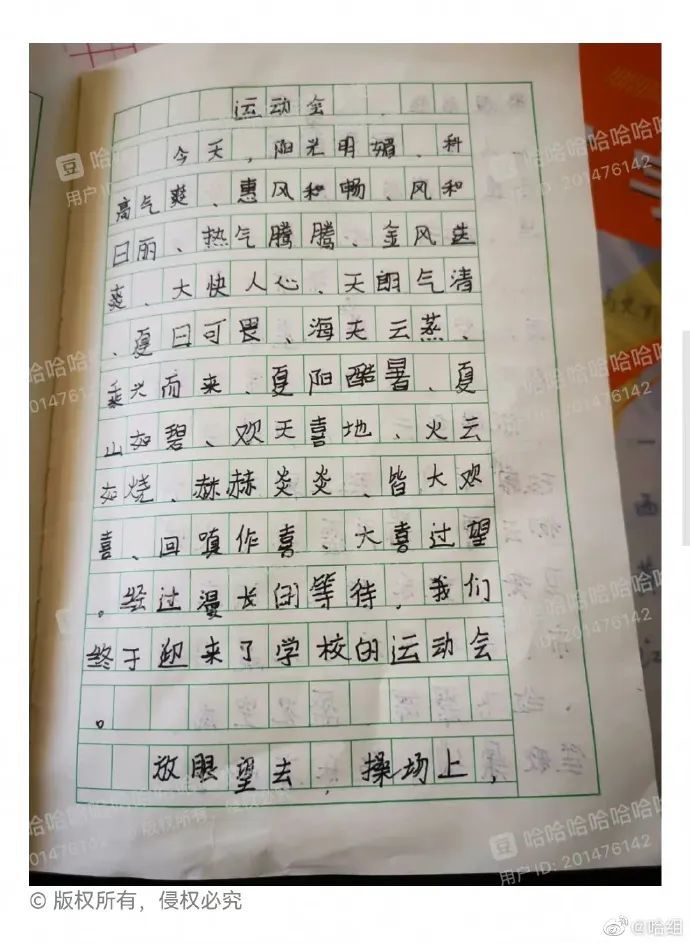 运动会
今天，阳光明媚、秋
高气爽、惠风和畅、风和
日丽、热气腾腾、金风送
爽、大快人心、天朗气清
、夏日可畏、海天云蒸、
乘兴而来、夏阳酷暑、夏
山如碧、欢天喜地、火云
如烧、赫赫炎炎、皆大欢
喜、回嗔作喜、大喜过望
。经过漫长的等待，我们
终于迎来了学校的运动会
。
放眼望去，操场上，
豆 哈哈哈哈哈哈
用户ID: 201476142
版权所有，
© 版权所有，侵权必究
@哈组